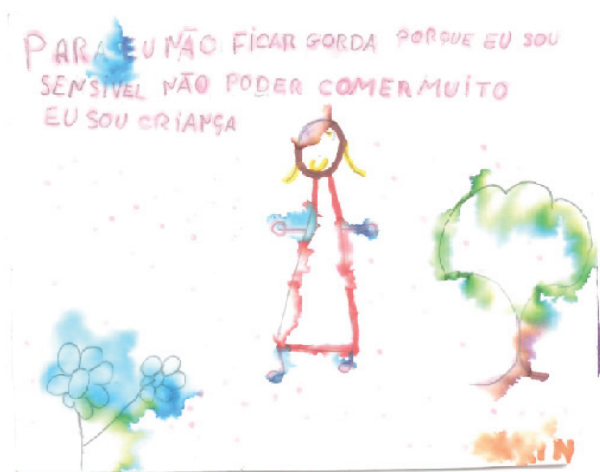 PARA EU NÃO FICAR GORDA PORQUE EU SOU
SENSIVEL NÃO PODER COMER MUITO
EU SOU CRIANÇA